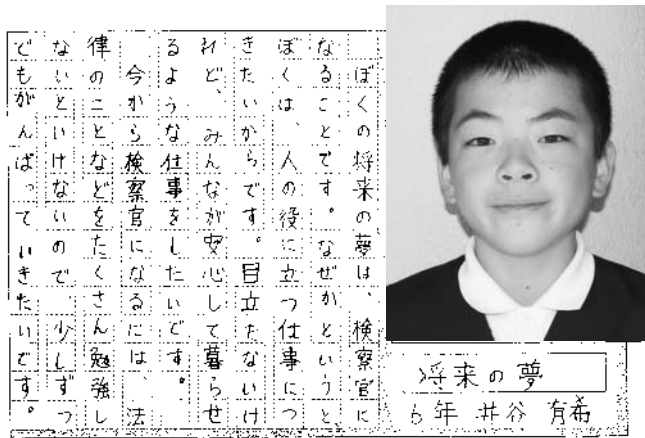 将来の夢
6年 井谷 有希
ぼくの将来の夢は、検察官に
なることです。なぜかというと
ぼくは、人の役に立つ仕事につ
きたいからです。目立たないけ
れど、みんなが安心して暮らせ
るような仕事をしたいです。
今から検察官になるには、法
律のことなどをたくさん勉強し
ないといけないので、少しずつ
でもがんばっていきたいです。